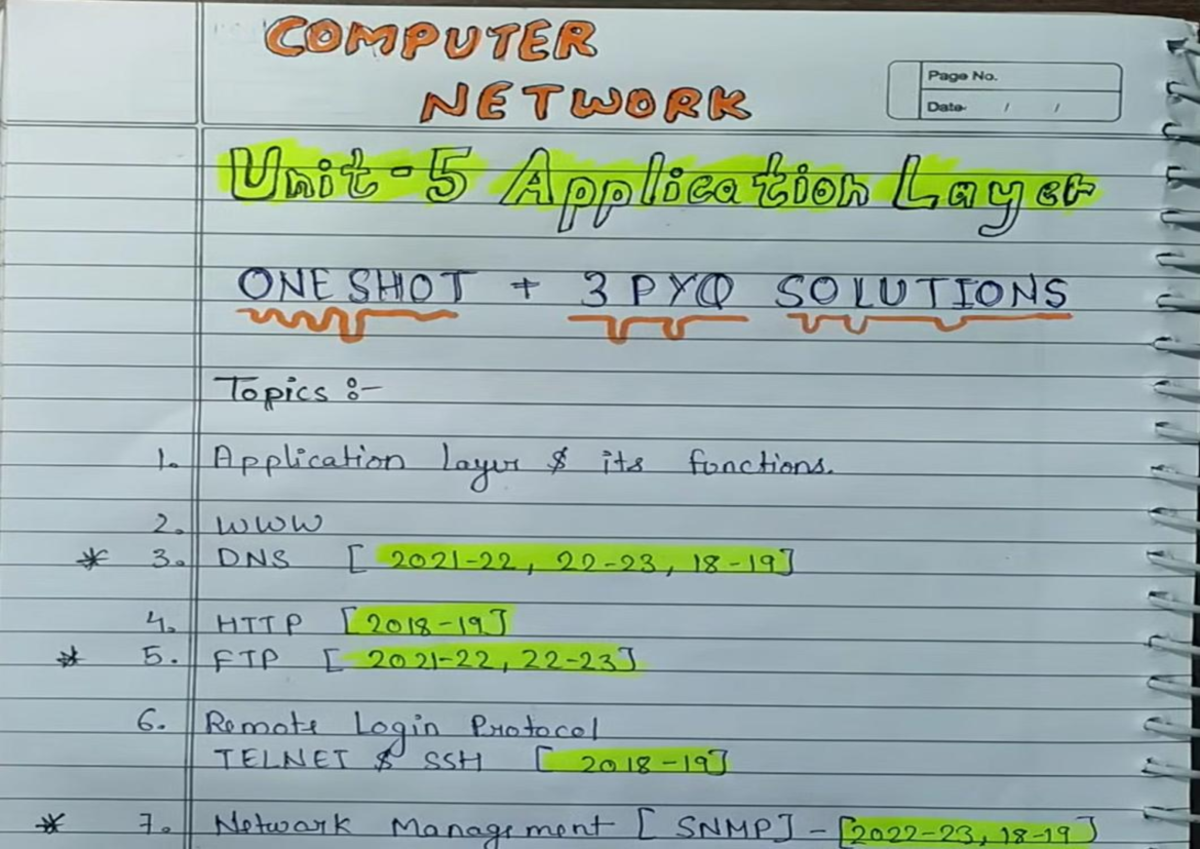 COMPUTER
NETWORK
Page No.
Date / /
Unit-5 Application Layer
ONE SHOT + 3 PYQ SOLUTIONS
Topics :-
1. Application layer & its functions.
2. WWW
* 3. DNS [2021-22, 22-23, 18-19]
4. HTTP [2018-19]
* 5. FTP [2021-22, 22-23]
6. Remote Login Protocol
TELNET & SSH [2018-19]
* 7. Network Management [SNMP] - [2022-23, 18-19]